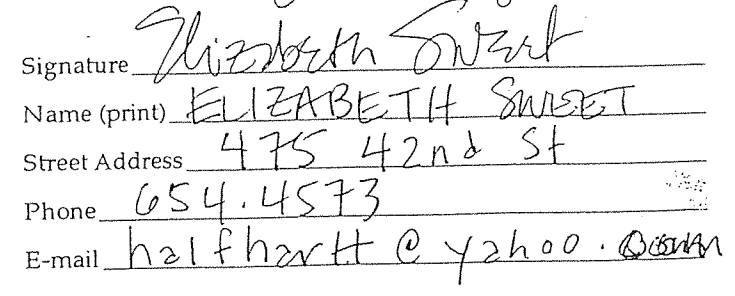 Signature Elizabeth Sweet
Name (print) ELIZABETH SWEET
Street Address 475 42nd St
Phone 654.4573
E-mail halfhartt@yahoo.